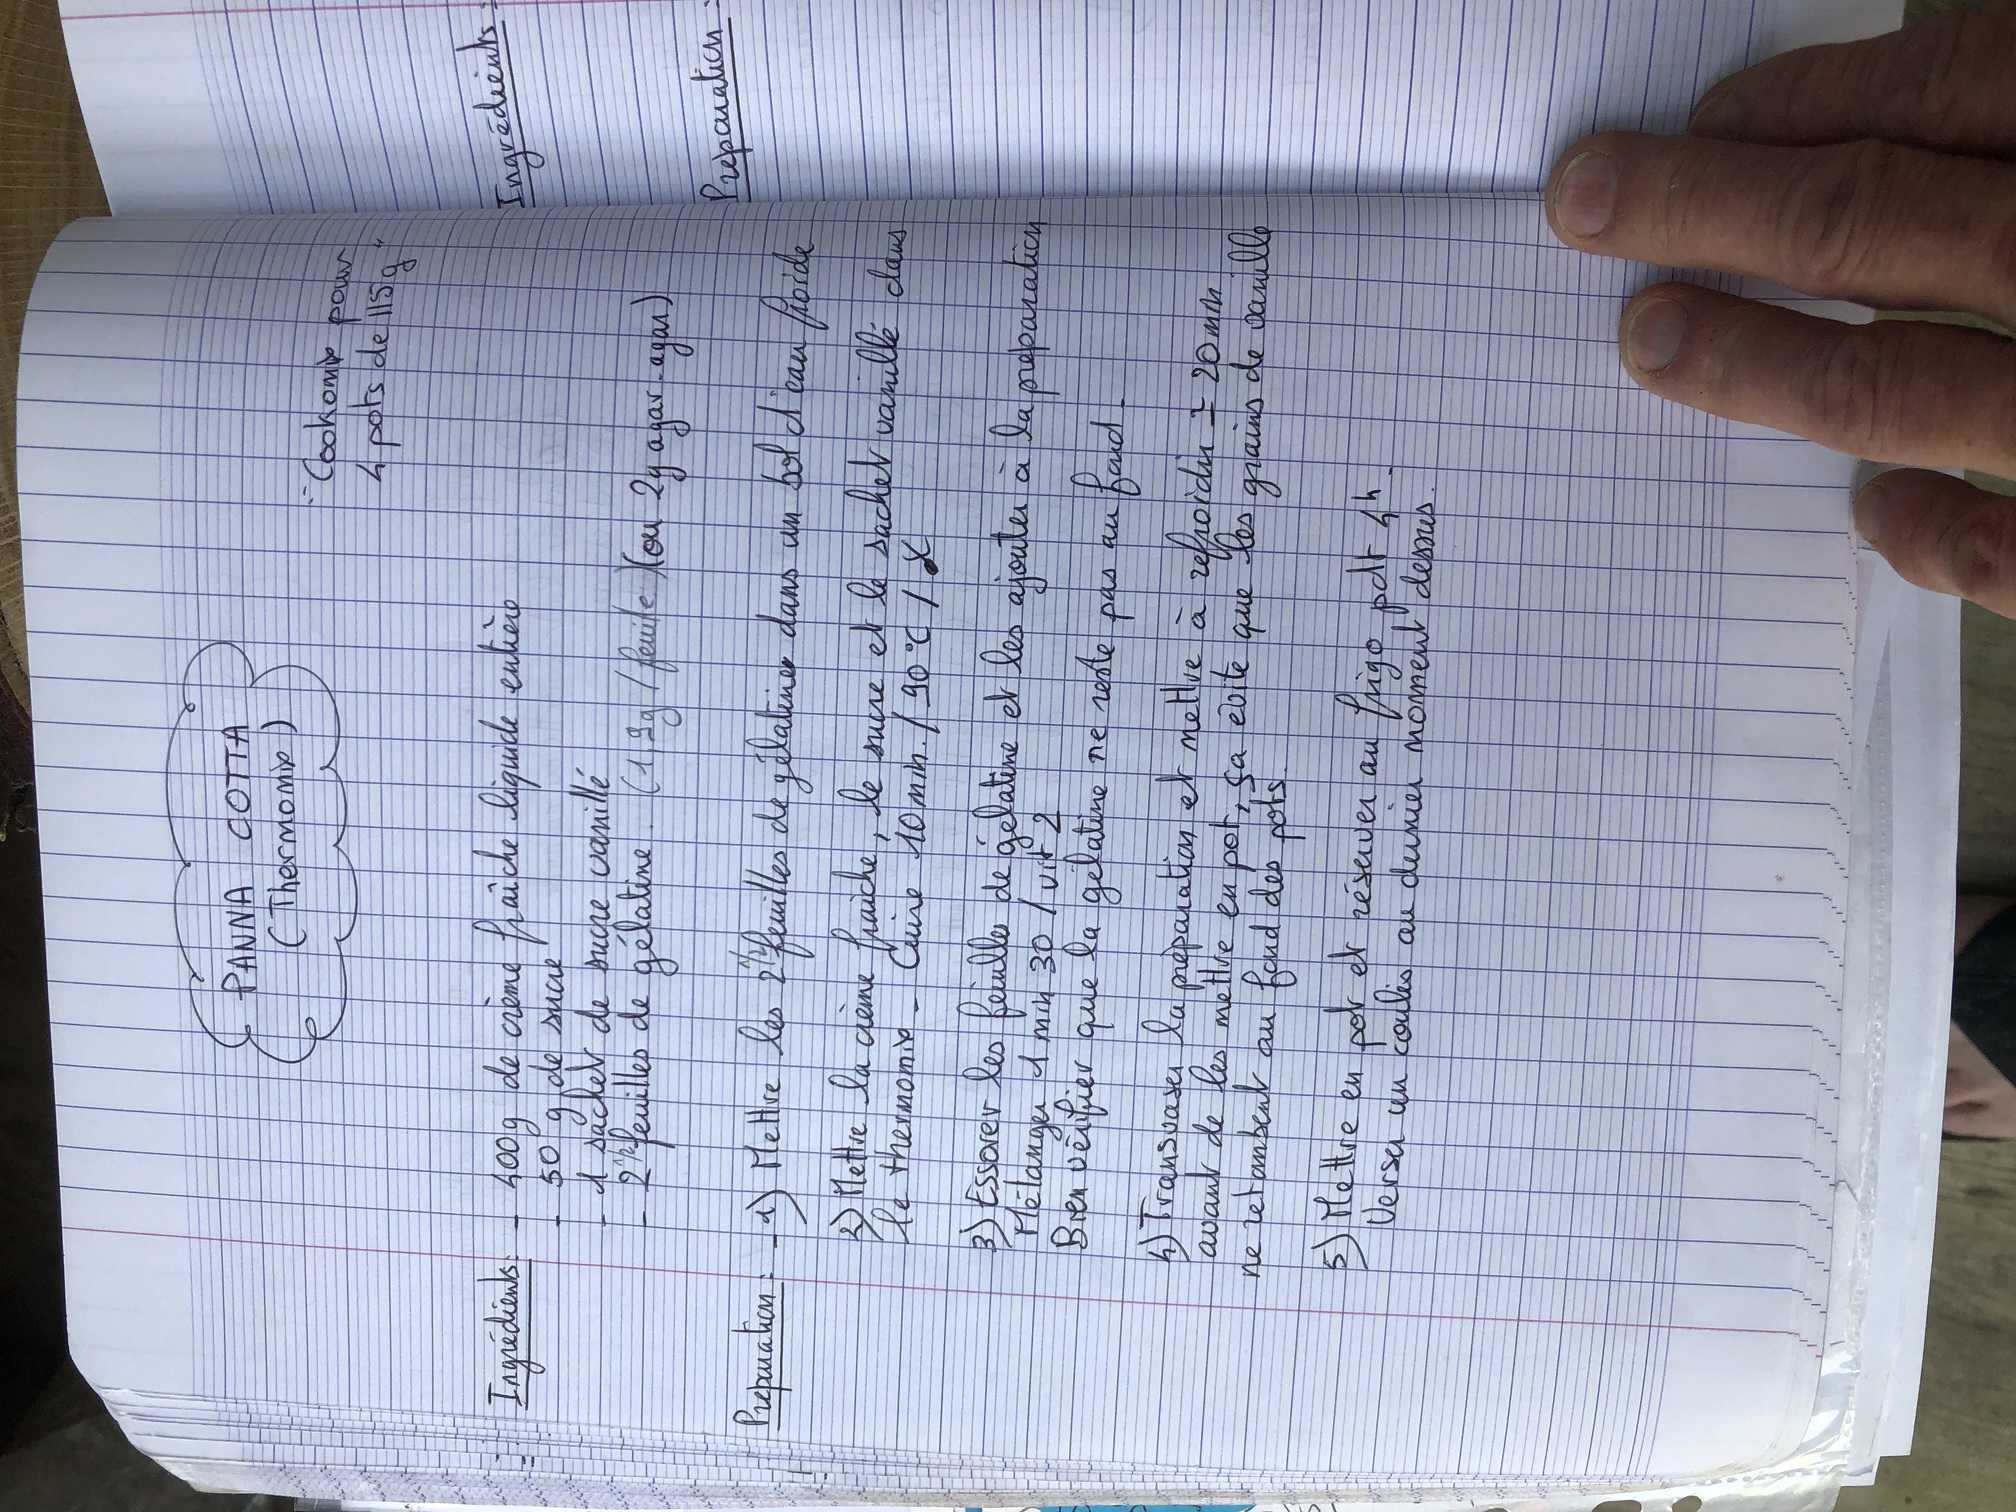 PANNA COTTA
(Thermomix)
"Cookomix pour
4 pots de 115g"
Ingrédients : - 400g de crème fraîche liquide entière
- 50 g de sucre
- 1 sachet de sucre vanillé
- 2 1/2 feuilles de gélatine. (1,9g / feuille) (ou 2g agar-agar)
Préparation : - 1) Mettre les 2 1/2 feuilles de gélatine dans un bol d'eau froide
2) Mettre la crème fraîche, le sucre et le sachet vanillé dans
le thermomix - Cuire 10 min. / 90°C /
3) Essorer les feuilles de gélatine et les ajouter à la préparation
Mélanger 1 min 30 / vit 2
Bien vérifier que la gélatine ne reste pas au fond.
4) Transvaser la préparation et mettre à refroidir ± 20 min
avant de les mettre en pot, ça évite que les grains de vanille
ne retombent au fond des pots.
5) Mettre en pot et réserver au frigo pdt 4h.
Verser un coulis au dernier moment dessus.
Ingrédients :
Préparation :